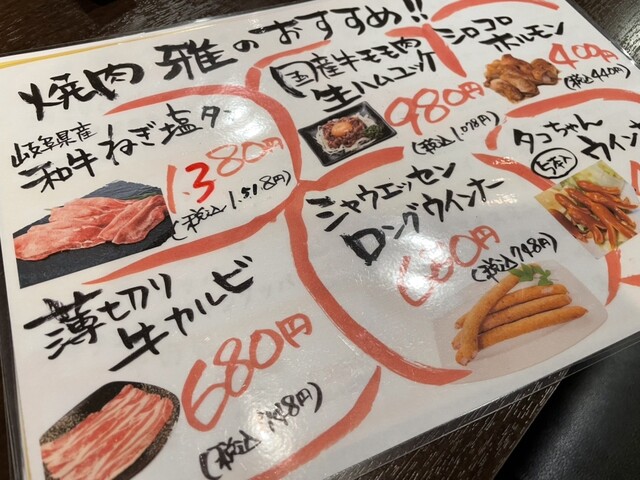 焼肉 雅のおすすめ!!
岐阜県産
和牛ねぎ塩タン
1.380円
(税込1.518円)
国産牛モモ肉
生ハムユッケ
980円
(税込1.078円)
シロコロ
ホルモン
400円
(税込440円)
タコちゃん
ウインナ
シャウエッセン
ロングウインナー
680円
(税込748円)
薄切り
牛カルビ
680円
(税込748円)